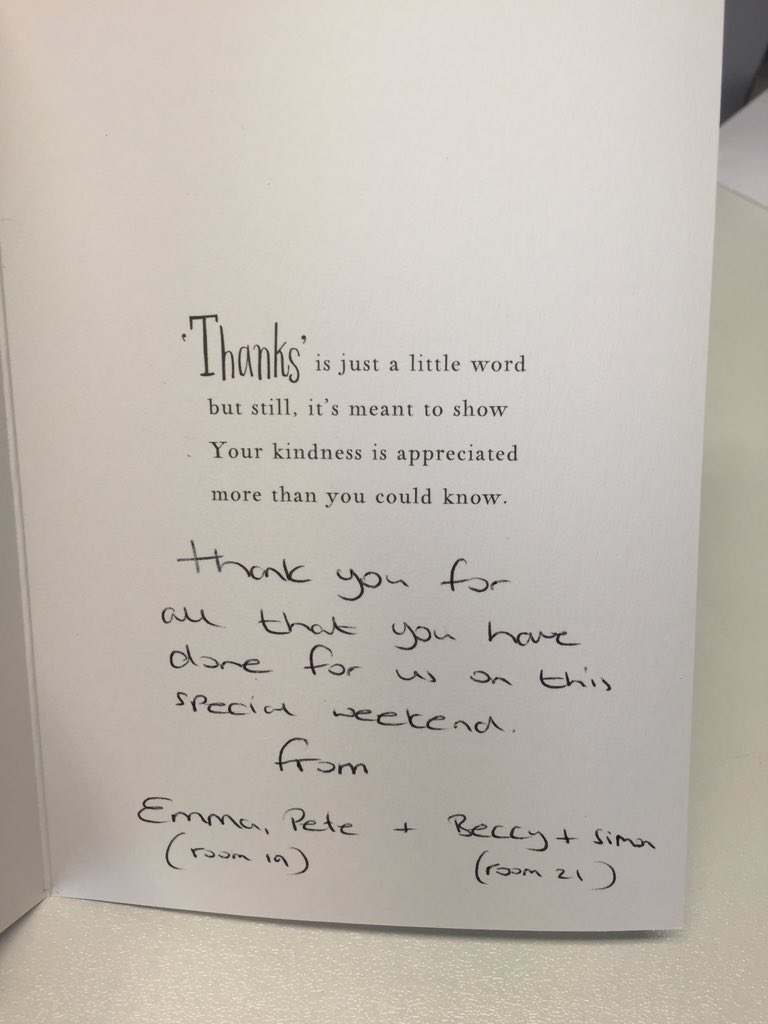 'Thanks' is just a little word
but still, it's meant to show
Your kindness is appreciated
more than you could know.
thank you for
all that you have
done for us on this
special weekend.
from
Emma, Pete + Beccy + Simon
(room 19) (room 21)